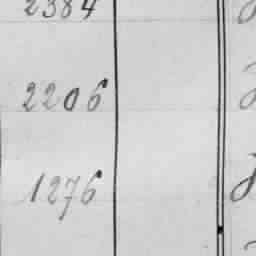 2384
2206
1276